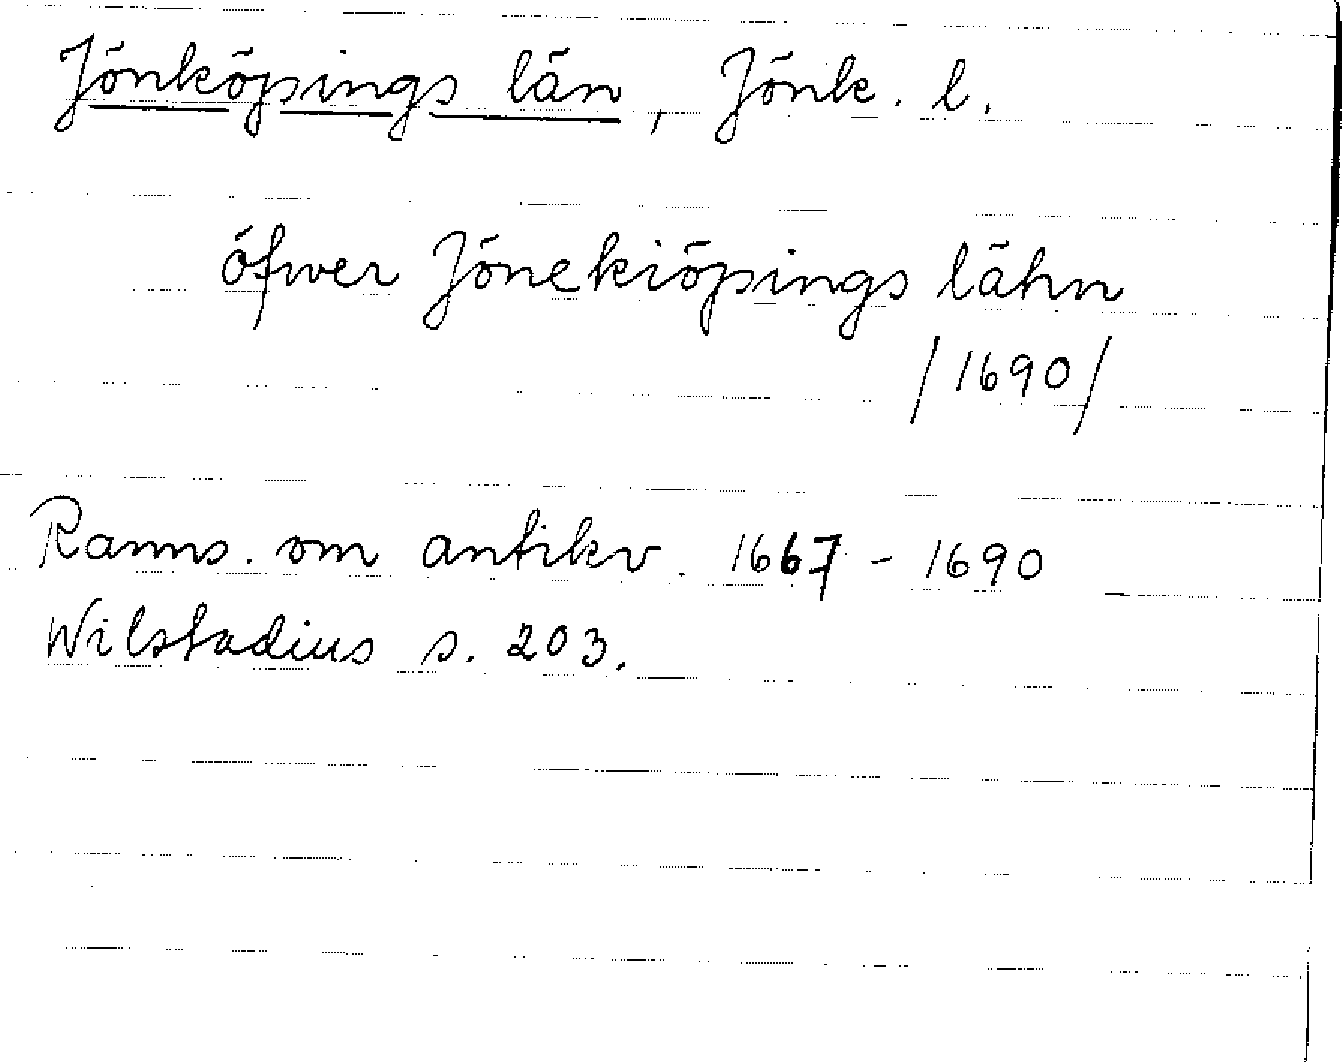 Jönköpings län, Jönk. l.
öfwer Jönekiöpings lähn
/1690/
Ranns. om antikv. 1667 - 1690
Wilstadius s. 203.